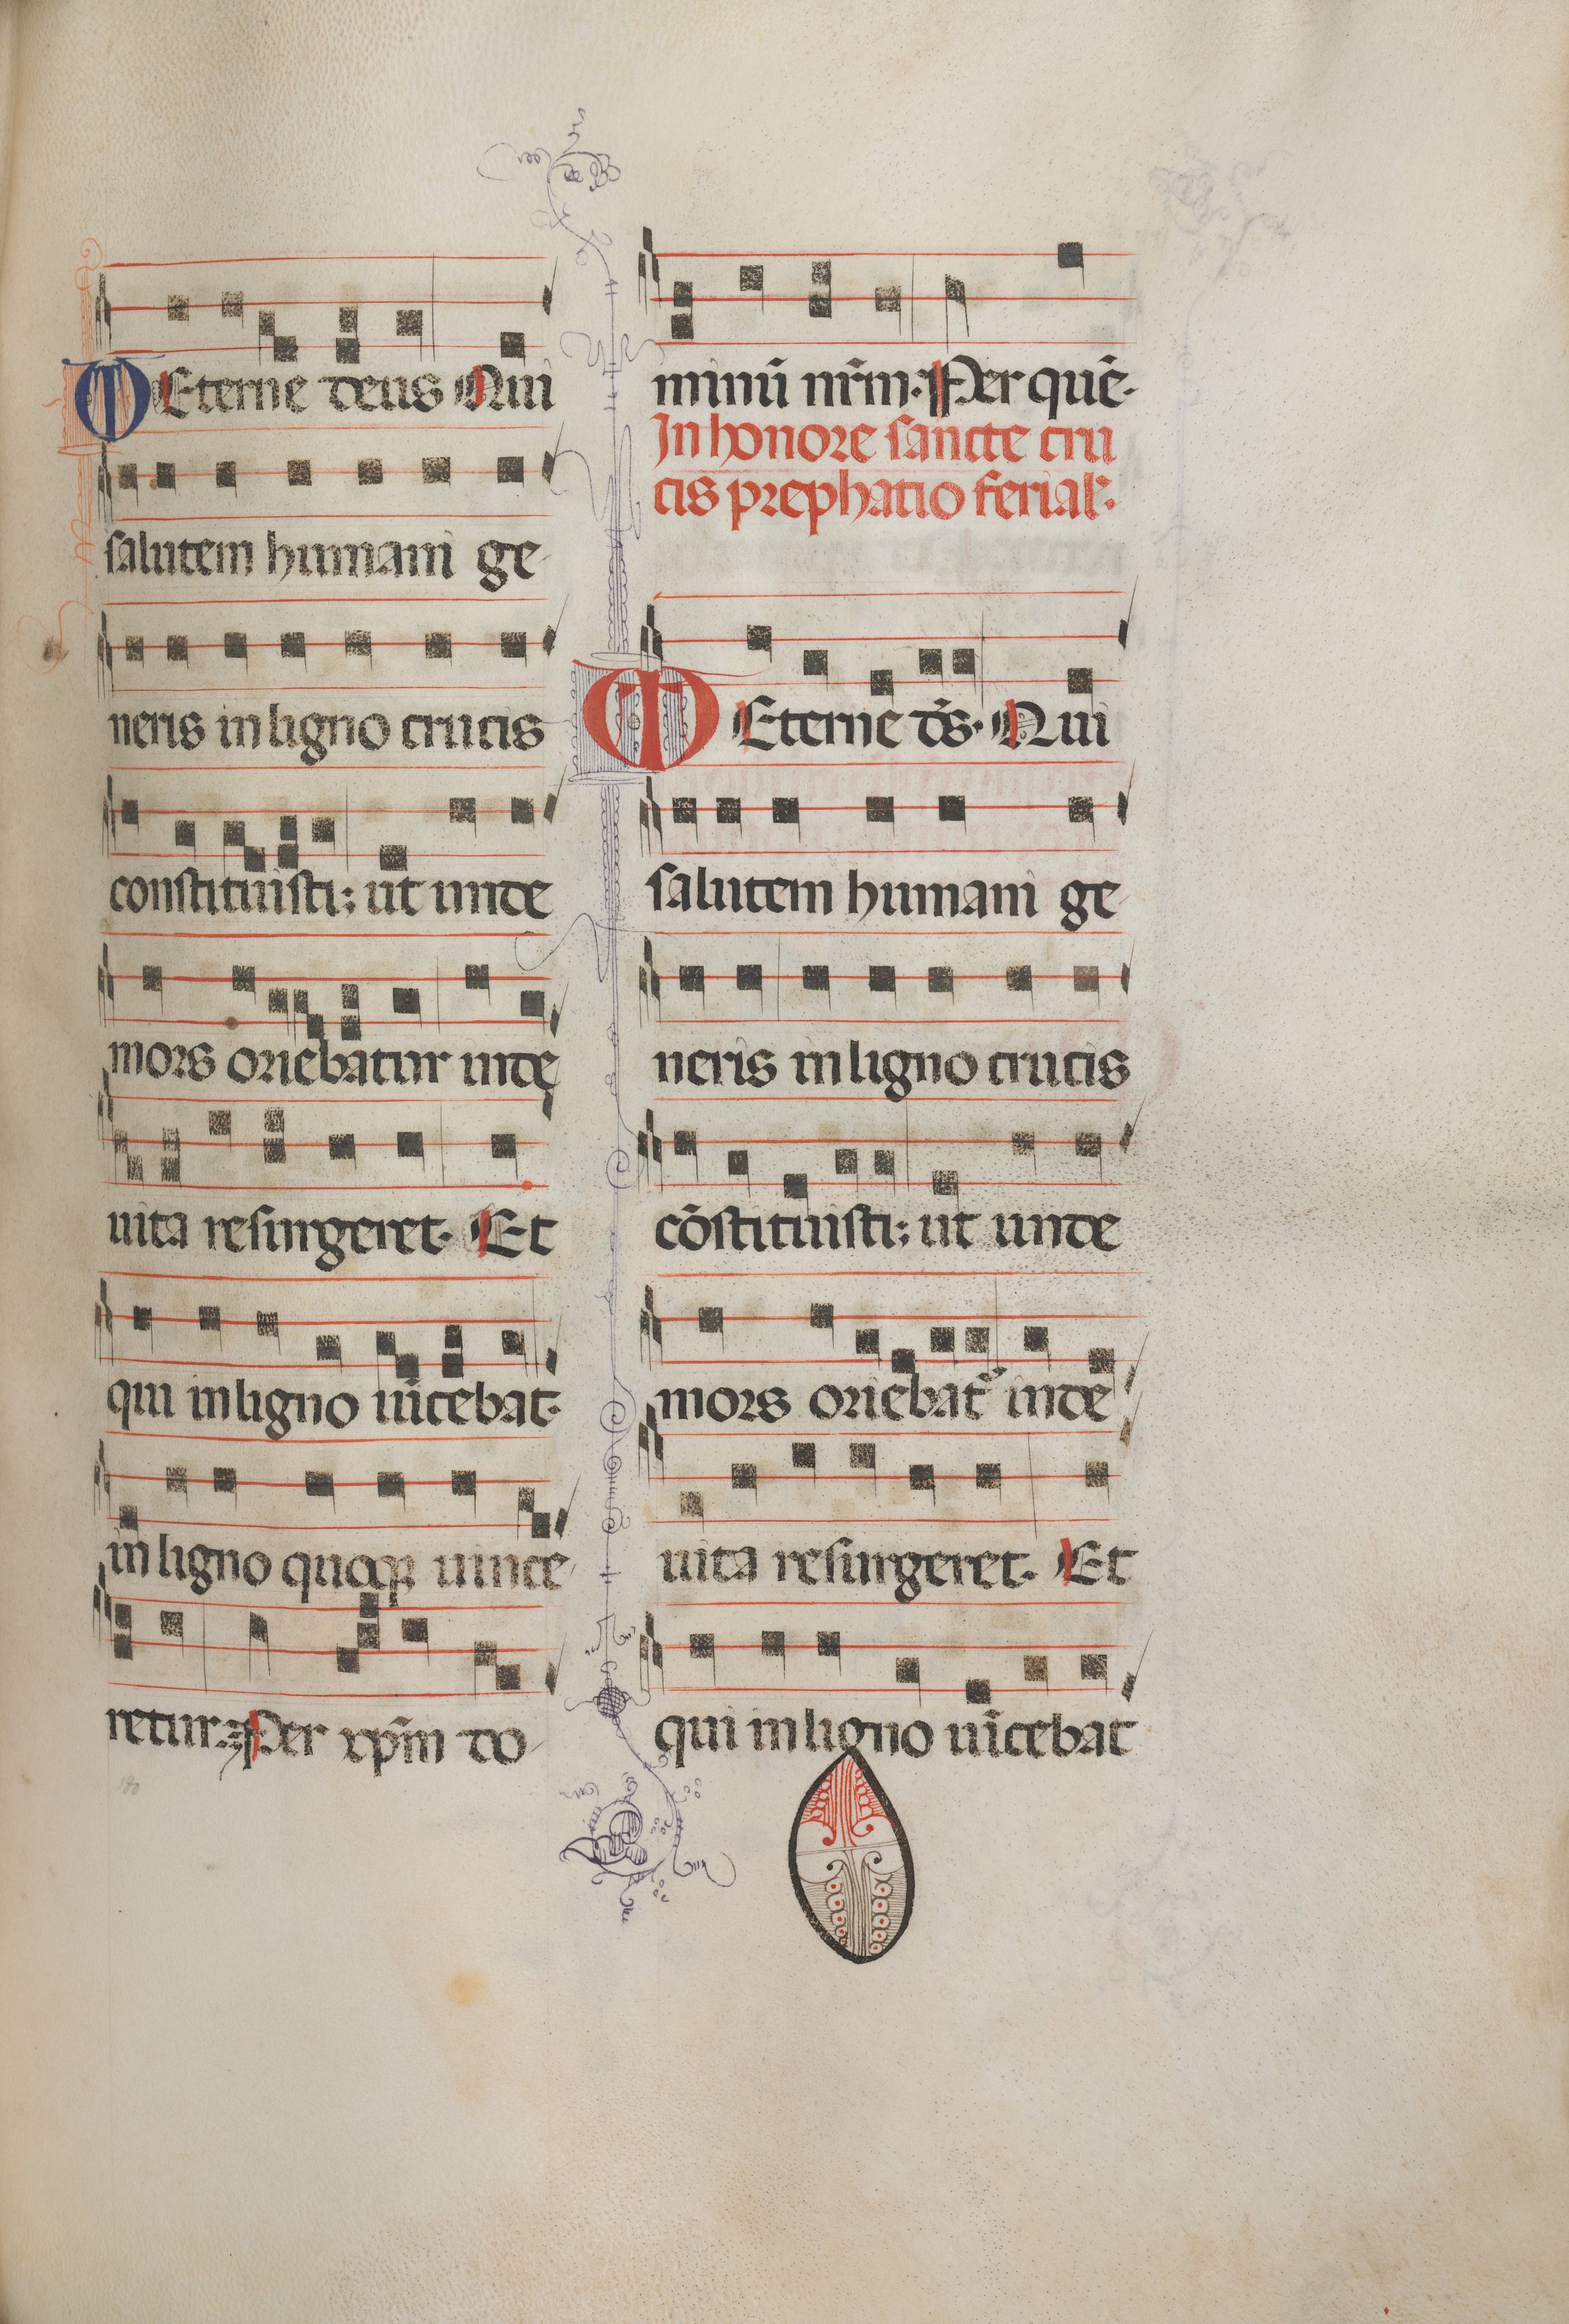 Eterne deus Qui
salutem humani ge-
neris in ligno crucis
constituisti; ut unde
mors oriebatur inde
uita resurgeret. Et
qui in ligno uĩcebat.
in ligno quoqꝫ uince-
retur. Per xp̃m do-
minũ nr̃m. Per quẽ.
In honore sancte cru
cis prephatio ferial'.
Eterne d̃s. Qui
salutem humani ge-
neris in ligno crucis
cõstituisti; ut unde
mors oriebat᷑ inde
uita resurgeret. Et
qui in ligno uĩcebat
180